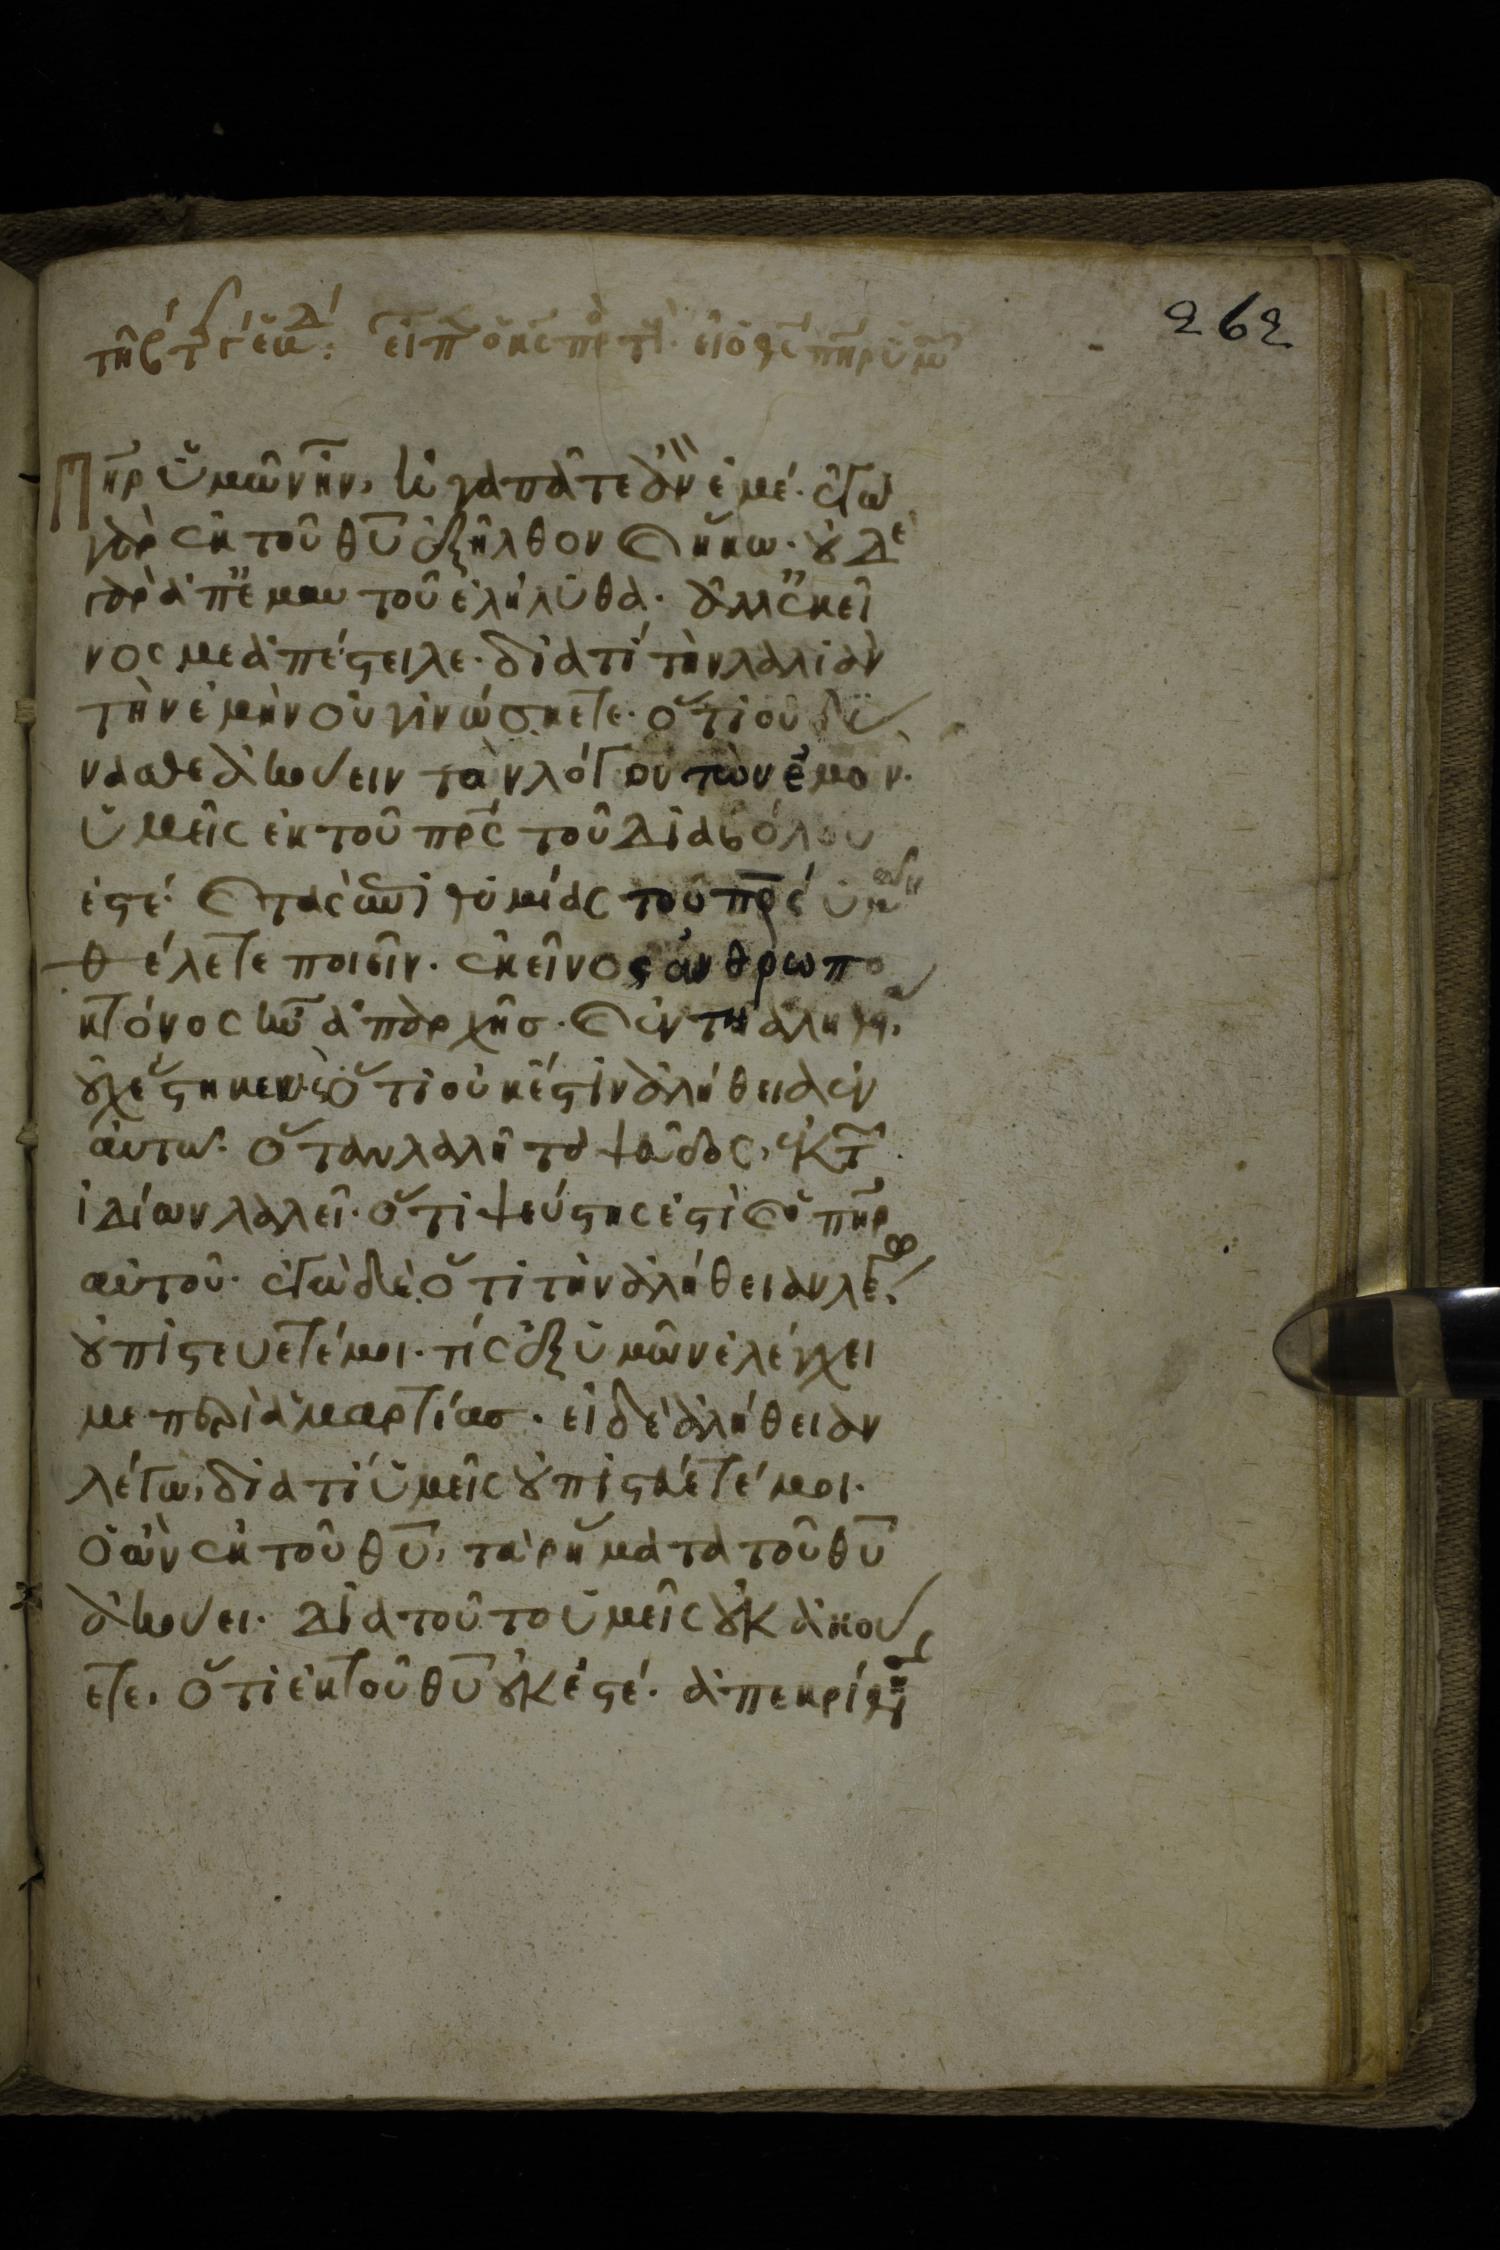 262
τῆ β τ γ εβδ: εἶπ ὁ κς πρ τ εἰ ὁ θς πηρ ὑμῶ
Πηρ ὑμῶν ἦν, ἠγαπᾶτε ἂν ἐμέ· ἐγὼ
γὰρ ἐκ τοῦ θυ ἐξῆλθον καὶ ἥκω· οὐδὲ
γὰρ ἀπ' ἐμαυτοῦ ἐλήλυθα· ἀλλ' ἐκεῖ
νος με ἀπέστειλε· διατί τὴν λαλιὰν
τὴν ἐμὴν οὐ γινώσκετε· ὅτι οὐ δύ
νασθε ἀκούειν τὸν λόγον τὸν ἐμόν·
ὑμεῖς ἐκ τοῦ πρς τοῦ διαβόλου
ἐστέ· καὶ τὰς ἐπιθυμίας τοῦ πρς ὑμῶν
θέλετε ποιεῖν· ἐκεῖνος ἀνθρωπο
κτόνος ἦν ἀπαρχῆς· καὶ ἐν τῆ ἀληθεία
οὐχ ἕστηκεν· ὅτι οὐκ ἔστιν ἀλήθεια ἐν
αὐτω· ὅταν λαλῆ τὸ ψεῦδος, ἐκ τῶν
ἰδίων λαλεῖ· ὅτι ψεύστης ἐστὶ καὶ ὁ πηρ
αὐτοῦ· ἐγὼ δὲ ὅτι τὴν ἀλήθειαν λέγω,
οὐ πιστεύετέ μοι· τίς ἐξ ὑμῶν ἐλέγχει
με περὶ ἁμαρτίας· εἰ δὲ ἀλήθειαν
λέγω, διατί ὑμεῖς οὐ πιστεύετέ μοι·
ὁ ὢν ἐκ τοῦ θυ, τὰ ῥήματα τοῦ θυ
ἀκούει· διατοῦτο ὑμεῖς οὐκ ἀκού
ετε, ὅτι ἐκ τοῦ θυ οὐκ ἐστέ· ἀπεκρίθησαν